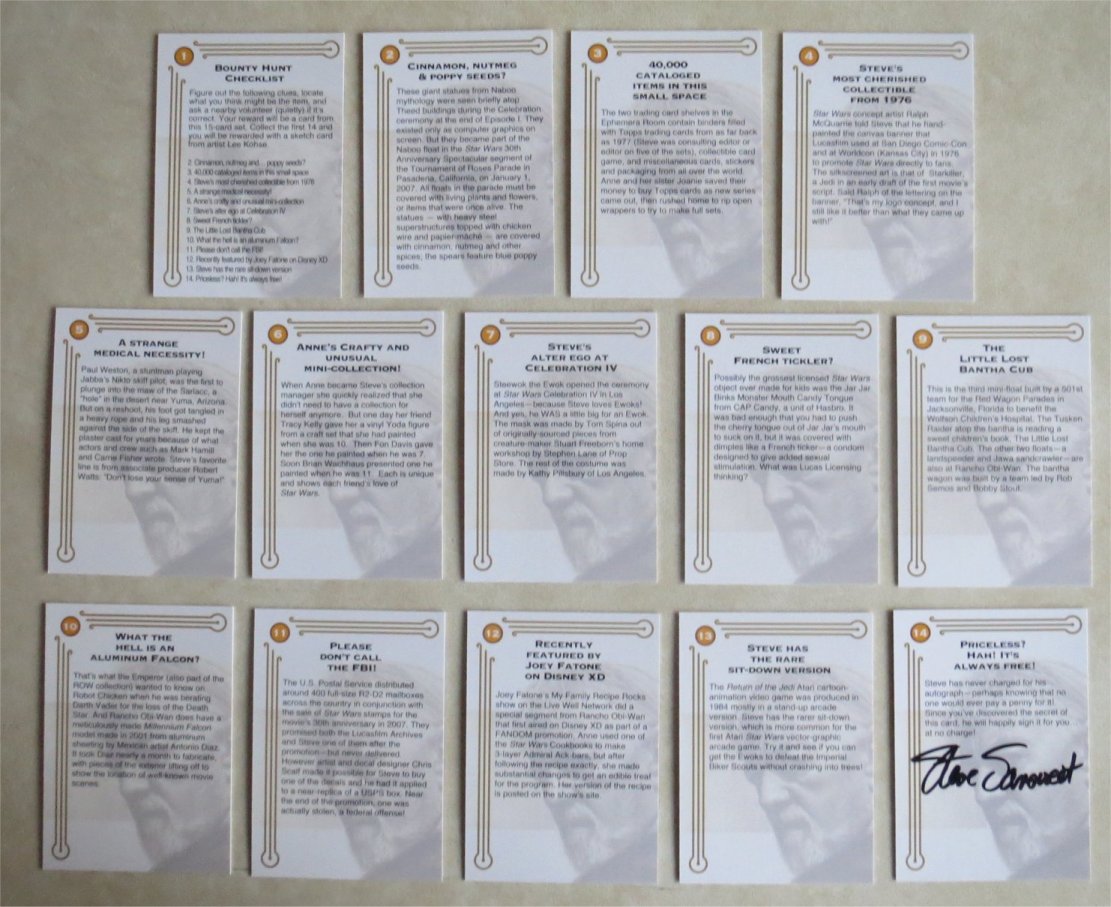 1
BOUNTY HUNT
CHECKLIST
Figure out the following clues, locate
what you think might be the item, and
ask a nearby volunteer (quietly) if it's
correct. Your reward will be a card from
this 15-card set. Collect the first 14 and
you will be rewarded with a sketch card
from artist Lee Kohse.
2. Cinnamon, nutmeg and... poppy seeds?
3. 40,000 cataloged items in this small space
4. Steve's most cherished collectible from 1976
5. A strange medical necessity!
6. Anne's crafty and unusual mini-collection
7. Steve's alter ego at Celebration IV
8. Sweet French tickler?
9. The Little Lost Bantha Cub
10. What the hell is an aluminum Falcon?
11. Please don't call the FBI!
12. Recently featured by Joey Fatone on Disney XD
13. Steve has the rare sit-down version
14. Priceless? Hah! It's always free!
2
CINNAMON, NUTMEG
& POPPY SEEDS?
These giant statues from Naboo
mythology were seen briefly atop
Theed buildings during the Celebration
ceremony at the end of Episode I. They
existed only as computer graphics on
screen. But they became part of the
Naboo float in the Star Wars 30th
Anniversary Spectacular segment of
the Tournament of Roses Parade in
Pasadena, California, on January 1,
2007. All floats in the parade must be
covered with living plants and flowers,
or items that were once alive. The
statues — with heavy steel
superstructures topped with chicken
wire and papier-mâché — are covered
with cinnamon, nutmeg and other
spices; the spears feature blue poppy
seeds.
3
40,000
CATALOGED
ITEMS IN THIS
SMALL SPACE
The two trading card shelves in the
Ephemera Room contain binders filled
with Topps trading cards from as far back
as 1977 (Steve was consulting editor or
editor on five of the sets), collectible card
game, and miscellaneous cards, stickers
and packaging from all over the world.
Anne and her sister Joanie saved their
money to buy Topps cards as new series
came out, then rushed home to rip open
wrappers to try to make full sets.
4
STEVE'S
MOST CHERISHED
COLLECTIBLE
FROM 1976
Star Wars concept artist Ralph
McQuarrie told Steve that he hand-
painted the canvas banner that
Lucasfilm used at San Diego Comic-Con
and at Worldcon (Kansas City) in 1976
to promote Star Wars directly to fans.
The silkscreened art is that of Starkiller,
a Jedi in an early draft of the first movie's
script. Said Ralph of the lettering on the
banner, "That's my logo concept, and I
still like it better than what they came up
with!"
5
A STRANGE
MEDICAL NECESSITY!
Paul Weston, a stuntman playing
Jabba's Nikto skiff pilot, was the first to
plunge into the maw of the Sarlacc, a
"hole" in the desert near Yuma, Arizona.
But on a reshoot, his foot got tangled in
a heavy rope and his leg smashed
against the side of the skiff. He kept the
plaster cast for years because of what
actors and crew such as Mark Hamill
and Carrie Fisher wrote. Steve's favorite
line is from associate producer Robert
Watts: "Don't lose your sense of Yuma!"
6
ANNE'S CRAFTY AND
UNUSUAL
MINI-COLLECTION!
When Anne became Steve's collection
manager she quickly realized that she
didn't need to have a collection for
herself anymore. But one day her friend
Tracy Kelly gave her a vinyl Yoda figure
from a craft set that she had painted
when she was 10. Then Fon Davis gave
her the one he painted when he was 7.
Soon Brian Wachhaus presented one he
painted when he was 11. Each is unique
and shows each friend's love of
Star Wars.
7
STEVE'S
ALTER EGO AT
CELEBRATION IV
Steewok the Ewok opened the ceremony
at Star Wars Celebration IV in Los
Angeles—because Steve loves Ewoks!
And yes, he WAS a little big for an Ewok.
The mask was made by Tom Spina out
of originally-sourced pieces from
creature-maker Stuart Freeborn's home
workshop by Stephen Lane of Prop
Store. The rest of the costume was
made by Kathy Pillsbury of Los Angeles.
8
SWEET
FRENCH TICKLER?
Possibly the grossest licensed Star Wars
object ever made for kids was the Jar Jar
Binks Monster Mouth Candy Tongue
from CAP Candy, a unit of Hasbro. It
was bad enough that you had to push
the cherry tongue out of Jar Jar's mouth
to suck on it, but it was covered with
dimples like a French ticker—a condom
designed to give added sexual
stimulation. What was Lucas Licensing
thinking?
9
THE
LITTLE LOST
BANTHA CUB
This is the third mini-float built by a 501st
team for the Red Wagon Parades in
Jacksonville, Florida to benefit the
Wolfson Children's Hospital. The Tusken
Raider atop the bantha is reading a
sweet children's book, The Little Lost
Bantha Cub. The other two floats—a
landspeeder and Jawa sandcrawler—are
also at Rancho Obi-Wan. The bantha
wagon was built by a team led by Rob
Gemos and Bobby Stout.
10
WHAT THE
HELL IS AN
ALUMINUM FALCON?
That's what the Emperor (also part of the
ROW collection) wanted to know on
Robot Chicken when he was berating
Darth Vader for the loss of the Death
Star. And Rancho Obi-Wan does have a
meticulously made Millennium Falcon
model made in 2001 from aluminum
sheeting by Mexican artist Antonio Diaz.
It took Diaz nearly a month to fabricate,
with pieces of the exterior lifting off to
show the location of well-known movie
scenes.
11
PLEASE
DON'T CALL
THE FBI!
The U.S. Postal Service distributed
around 400 full-size R2-D2 mailboxes
across the country in conjunction with
the sale of Star Wars stamps for the
movie's 30th anniversary in 2007. They
promised both the Lucasfilm Archives
and Steve one of them after the
promotion—but never delivered.
However artist and decal designer Chris
Scalf made it possible for Steve to buy
one of the decals and he had it applied
to a near-replica of a USPS box. Near
the end of the promotion, one was
actually stolen, a federal offense!
12
RECENTLY
FEATURED BY
JOEY FATONE
ON DISNEY XD
Joey Fatone's My Family Recipe Rocks
show on the Live Well Network did a
special segment from Rancho Obi-Wan
that first aired on Disney XD as part of a
FANDOM promotion. Anne used one of
the Star Wars Cookbooks to make
3-layer Admiral Ack-bars, but after
following the recipe exactly, she made
substantial changes to get an edible treat
for the program. Her version of the recipe
is posted on the show's site.
13
STEVE HAS
THE RARE
SIT-DOWN VERSION
The Return of the Jedi Atari cartoon-
animation video game was produced in
1984 mostly in a stand-up arcade
version. Steve has the rarer sit-down
version, which is more common for the
first Atari Star Wars vector-graphic
arcade game. Try it and see if you can
get the Ewoks to defeat the Imperial
Biker Scouts without crashing into trees!
14
PRICELESS?
HAH! IT'S
ALWAYS FREE!
Steve has never charged for his
autograph—perhaps knowing that no
one would ever pay a penny for it!
Since you've discovered the secret of
this card, he will happily sign it for you
at no charge!
Steve Sansweet